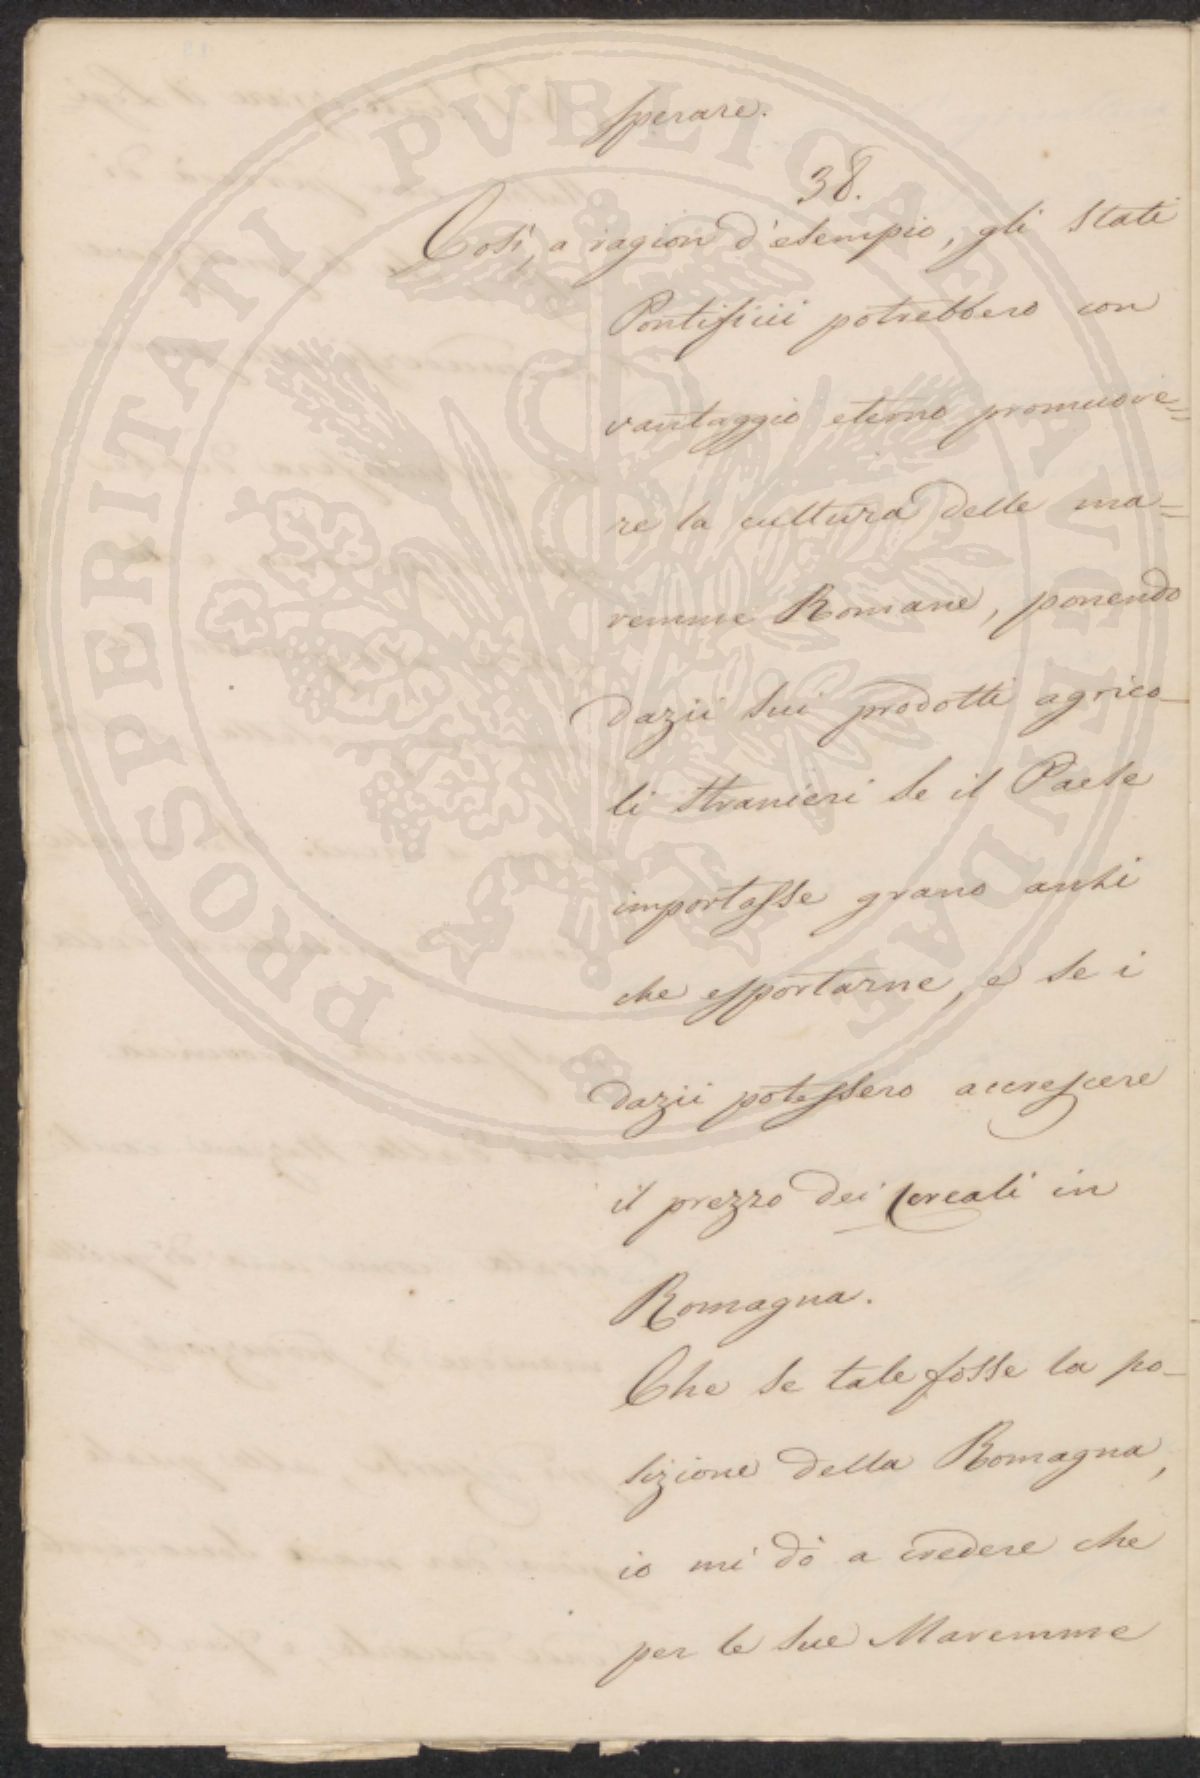 sperare.
38.
Così, a ragion d'esempio, gli Stati
Pontificii potrebbero con
vantaggio eterno promuove=
re la cultura delle ma=
remme Romane, ponendo
dazii sui prodotti agrico-
li stranieri se il Paese
importasse grano anzi
che esportarne, e se i
dazii potessero accrescere
il prezzo dei Cereali in
Romagna.
Che se tale fosse la po-
sizione della Romagna,
io mi dò a credere che
per le sue Maremme
PROSPERITATI PVBLICAE AVGENDAE